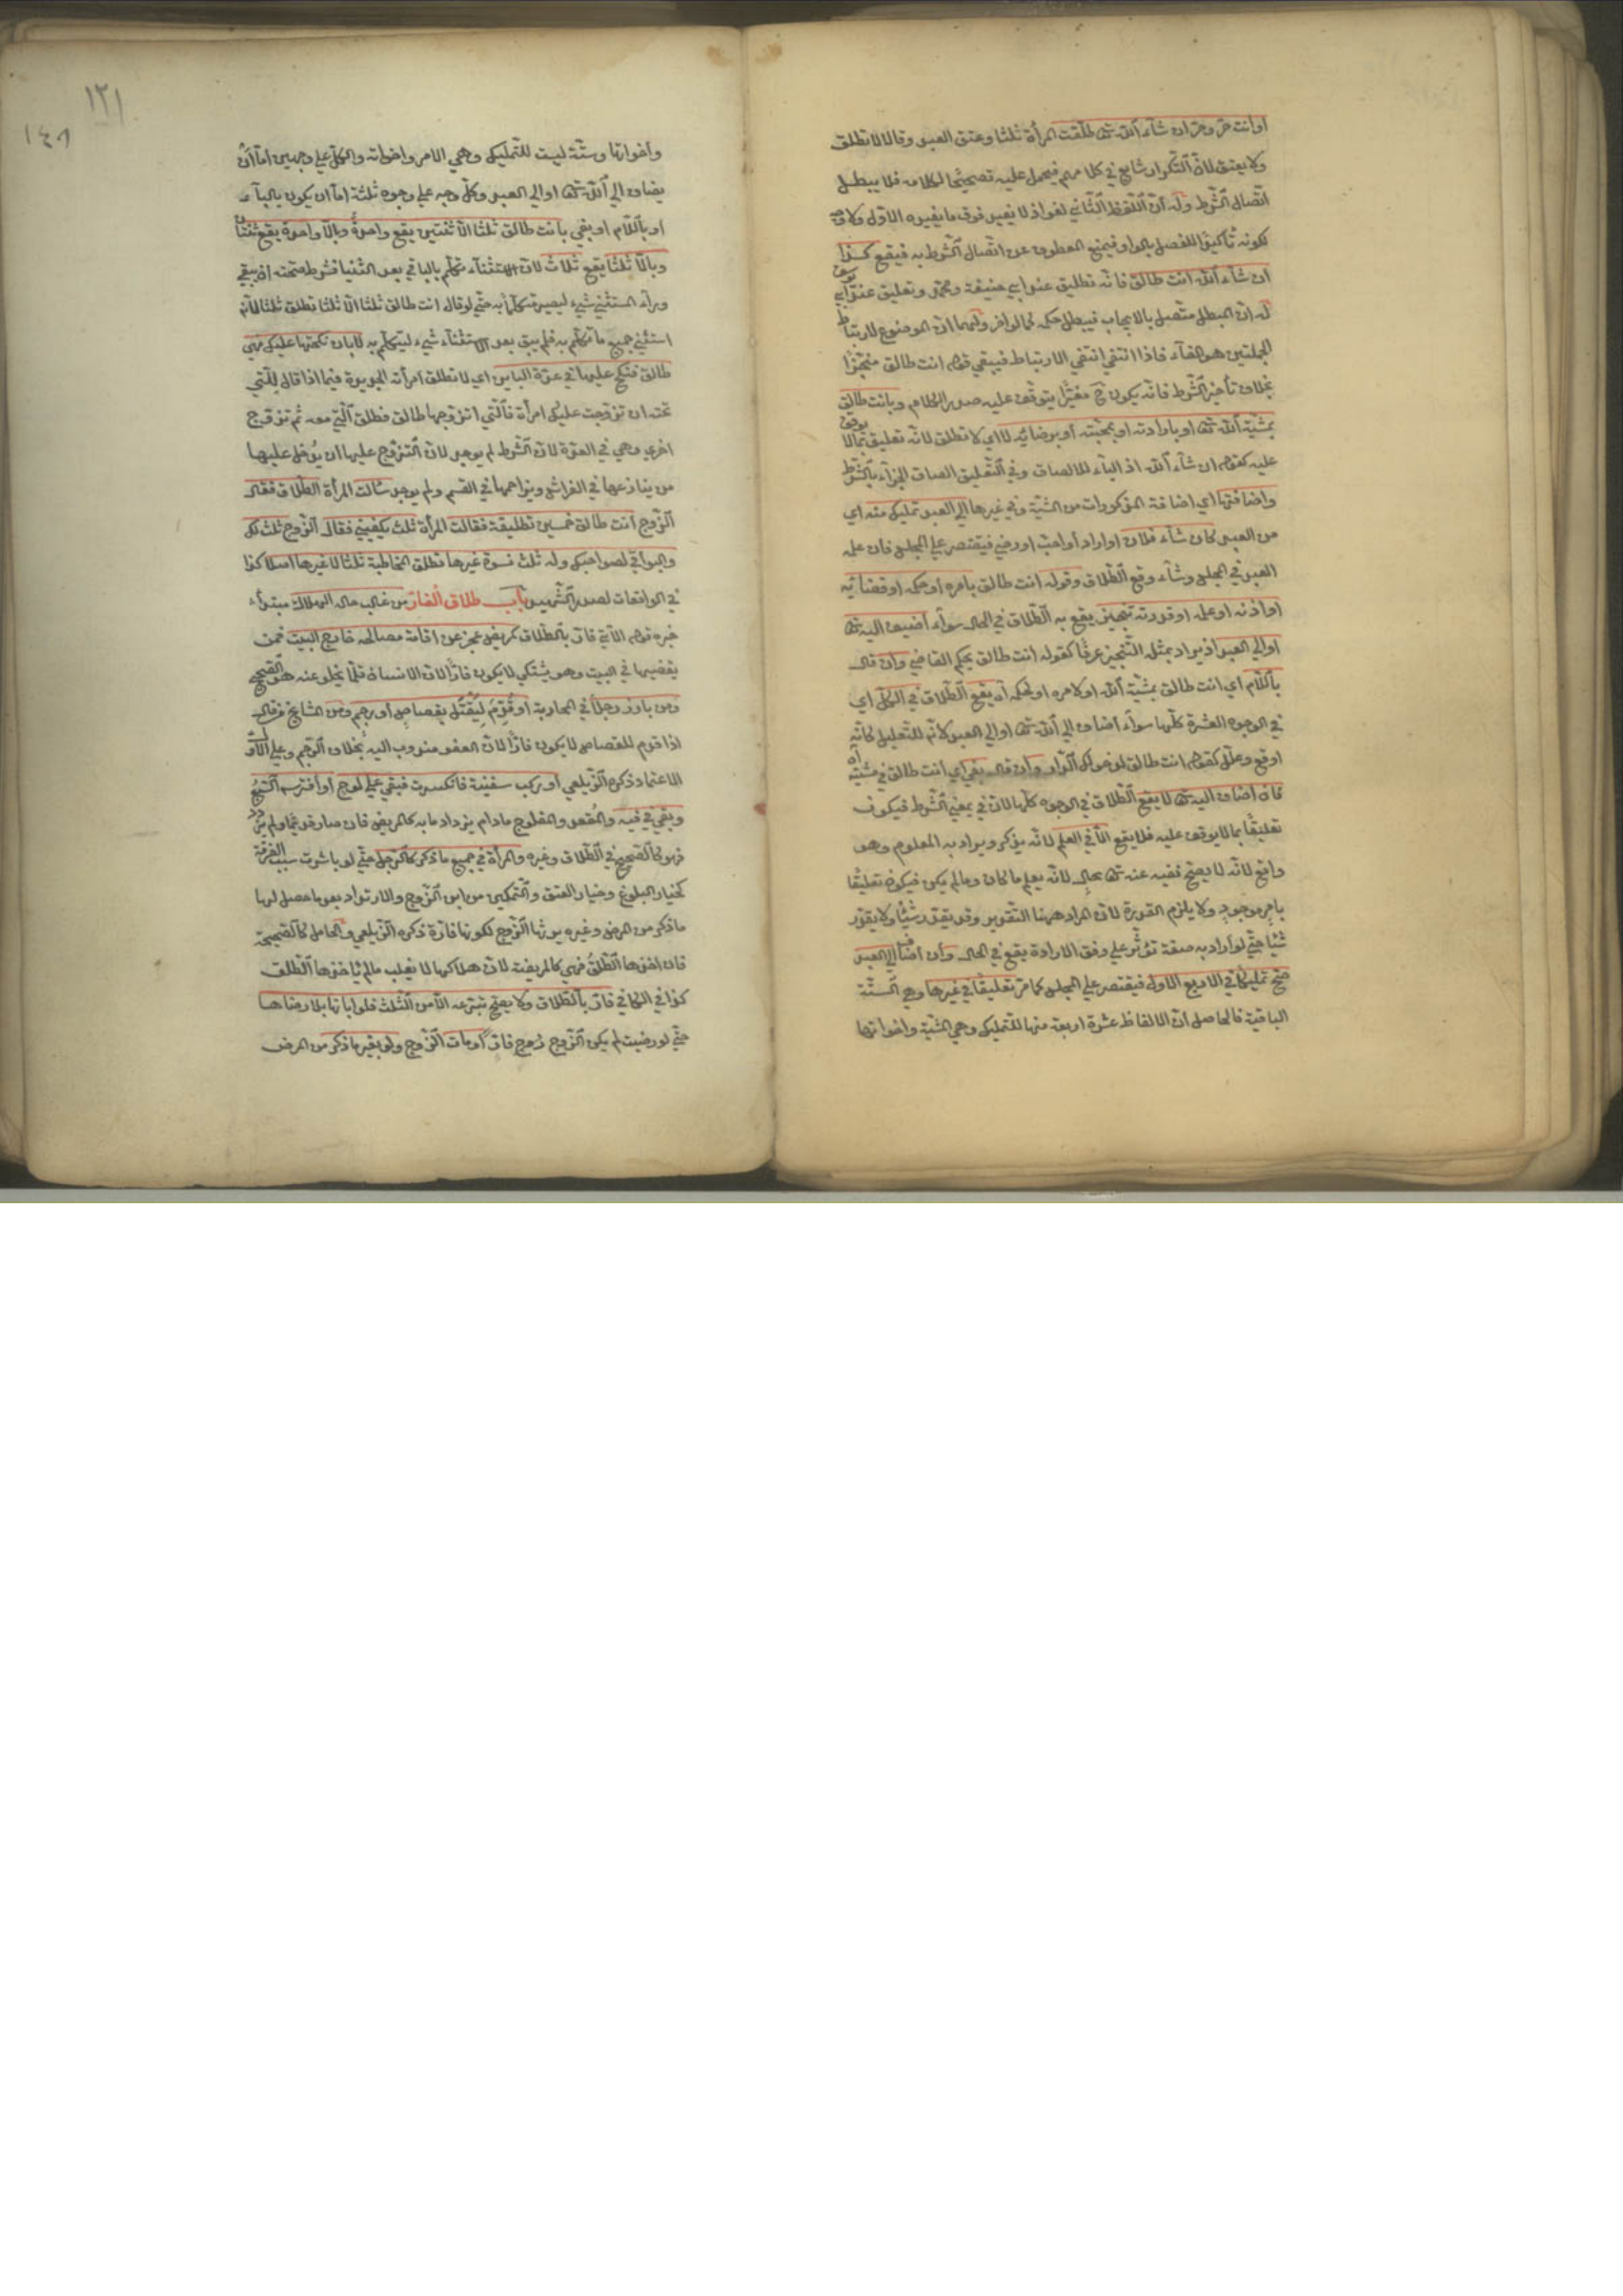 او أنت حرّ وحرّ ان شاء الله تعالى طلّقت المرأة ثلثا وعتق العبد وقالا لا تطلق
ولا يعتق لانّ التّكرار شايع في كلامهم فيحمل عليه تصحيحًا لكلامه فلا يبطل
اتّصال الشّرط وله انّ اللّفظ الثّاني لغو اذ لا يفيد فوق ما يفيده الاوّل ولا وجه
لكونه تأكيدًا للفصل بالواو فيمنع المعطوف عن اتّصال الشّرط به فيقع كذا
ان شاء الله انت طالق فانّه تطليق عند ابي حنيفة ومحمّد وتعليق عند ابي يوسف
له انّ المبطل متّصل بالايجاب فيبطل حكمه كما لو اخّر ولهما انّ الموضوع لارتباط
الجملتين هو الفاء فاذا انتفى انتفى الارتباط فيبقى قوله انت طالق منجّزًا
بخلاف تأخير الشّرط فانّه يكون ح مغيّرًا يتوقّف عليه صدر الكلام وبانت طالق
بمشيّة الله تعالى او بارادته او بمحبّته أو برضائه لا اي لا تطلق لانّه تعليق بما لا يوقف
عليه كقوله ان شاء الله اذ الباء للالصاق وفي التّعليق الصاق الجزاء بالشّرط
واضافتها اي اضافة المذكورات من المشيّة وغيرها الى العبد تمليك منه اي
من العبد كان شاء فلان او اراد أو احبّ او رضي فيقتصر على المجلس فان علم
العبد في المجلس وشاء وقع الطّلاق وقوله انت طالق بامره او حكمه او قضائه
او اذنه او علمه او قدرته تنجيز يقع به الطّلاق في الحال سواء أضيف اليه تعالى
او الى العبد اذ يراد بمثله التّنجيز عرفًا كقوله انت طالق بحكم القاضي وان قال
باللّام اي انت طالق لمشيّة الله او لامره او لحكمه آه يقع الطّلاق في الكلّ اي
في الوجوه العشرة كلّها سواء أضاف الى الله تعالى او الى العبد لانّه للتعليل كانّه
اوقع وعلّل كقوله انت طالق لدخولك الدّار وان قال بفي اي انت طالق في مشيّة الله
فان أضاف اليه تعالى لا يقع الطّلاق في الوجوه كلّها لانّ في بمعنى الشّرط فيكون
تعليقًا بما لا يوقف عليه فلا يقع الّا في العلم لانّه يذكر ويراد به المعلوم وهو
واقع لانّه لا يصحّ نفيه عنه تعالى بحال لانّه يعلم ما كان وما لم يكن فيكون تعليقًا
بامر موجود ولا يلزم القدرة لانّ المراد ههنا التّقدير وقد يقدّر شيئًا ولا يقدّر
شيئا حتّى لو أراد به صفة تؤثّر على وفق الارادة يقع في الحال وان أضاف الى العبد
صحّ تمليكًا في الاربع الاول فيقتصر على المجلس كما مرّ تعليقًا في غيرها وهي السّتّة
الباقية فالحاصل انّ الالفاظ عشرة اربعة منها للتّمليك وهي المشيّة واخواتها
١٢١
١٤٨
وأخواتها وستّة ليست للتّمليك وهي الامر واخواته والكلّ على وجهين امّا أن
يضاف الى الله تعالى او الى العبد وكلّ وجه على وجوه ثلثة امّا ان يكون بالباء
او باللّام او بفي بانت طالق ثلثا الّا ثنتين يقع واحدة وبالّا واحدة يقع ثنتان
وبالّا ثلثا يقع ثلاث لانّ الاستثناء تكلّم بالباقي بعد الثنيا فشرط صحّته ان يبقى
وراء المستثنى شيء ليصير متكلّمًا به حتّى لو قال انت طالق ثلثا الّا ثلثا تطلق ثلثا لانّه
استثنى جميع ما تكلّم به فلم يبق بعد الاستثناء شيء ليتكلّم به لا بان نكحتها عليك فهي
طالق فنكح عليها في عدّة البائن اي لا تطلق امرأته الجديدة فيما اذا قال للّتي
تحته ان تزوّجت عليك امرأة فالّتي اتزوّجها طالق فطلّق الّتي معه ثم تزوّج
اخرى وهي في العدّة لانّ الشّرط لم يوجد لانّ التّزوّج عليها ان يُدخل عليها
من ينازعها في الفراش ويزاحمها في القسم ولم يوجد سألت المرأة الطّلاق فقال
الزّوج أنت طالق خمسين تطليقة فقالت المرأة ثلث يكفيني فقال الزّوج ثلث لك
والبواقي لصواحبك وله ثلث نسوة غيرها تطلق المخاطبة ثلثا لا غيرها اصلا كذا
في الواقعات لصدر الشّهيد باب طلاق الفارّ من غالب حاله الهلاك مبتدأ
خبره قوله الآتي فارّ بالطّلاق كمريض عجز عن اقامة مصالحه خارج البيت فمن
يقضيها في البيت وهو يشتكي لا يكون فارًّا لانّ الانسان قلّما يخلو عنه هو الصّحيح
ومن بارز رجلًا في المحاربة أو قُدّم لِيُقتَل بقصاص أو رجم ومن المشايخ من قال
اذا قدّم للقصاص لا يكون فارًّا لانّ العفو مندوب اليه بخلاف الرّجم وعلى الاوّل
الاعتماد ذكره الزّيلعي أو ركب سفينة فانكسرت فبقي على لوح أو أفترسه السّبع
وبقي في فيه والمُقعد والمفلوج مادام يزداد ما به كالمريض فان صار قديمًا ولم يزدد
فهو كالصّحيح في الطّلاق وغيره والمرأة في جميع ما ذكر كالرّجل حتّى لو باشرت سبب الفرقة
كخيار البلوغ وخيار العتق والتّمكين من ابن الزّوج والارتداد بعد ما حصل لها
ما ذكر من المرض وغيره يرثها الزّوج لكونها فارّة ذكره الزّيلعي والحامل كالصّحيحة
فان اخذها الطّلقُ فهي كالمريضة لانّ هلاكها لا يغلب مالم يأخذها الطّلق
كذا في الكافي فارّ بالطّلاق ولا يصحّ تبرّعه الّا من الثّلث فلو ابانها بلا رضاها
حتّى لو رضيت لم يكن الزّوج زوج فارّ أو مات الزّوج ولو بغير ما ذكر من المرض